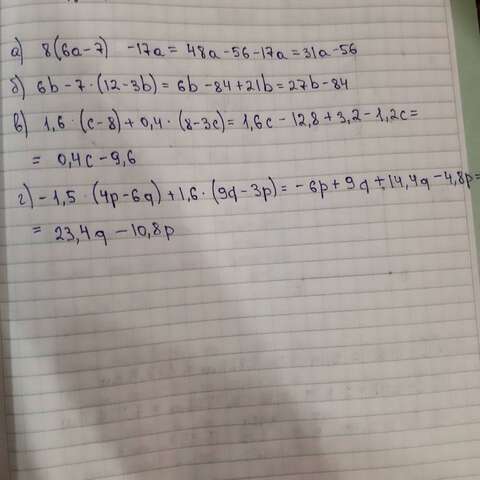 а) 8(6a-7) -17a = 48a-56-17a=31a-56
б) 6b-7·(12-3b)=6b-84+21b=27b-84
в) 1,6·(c-8)+0,4·(8-3c)=1,6c-12,8+3,2-1,2c=
= 0,4c-9,6
г) -1,5·(4p-6q)+1,6·(9q-3p)=-6p+9q+14,4q-4,8p=
= 23,4q-10,8p